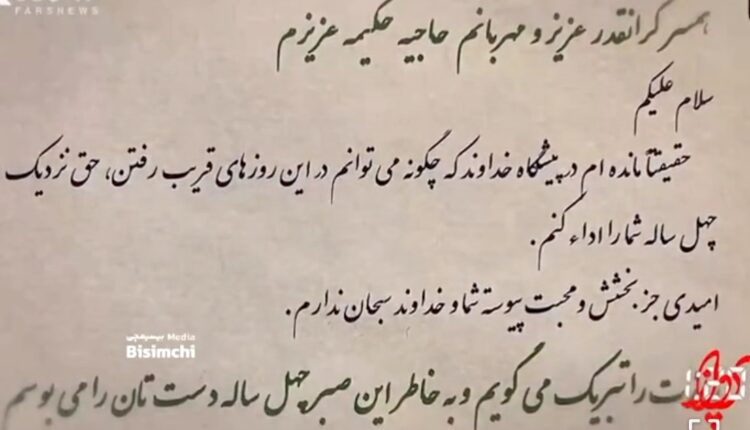 FARSNEWS
همسر گرانقدر عزیز و مهربانم حاجیه حکیمه عزیزم
سلام علیکم
حقیقتاً مانده ام در پیشگاه خداوند که چگونه می توانم در این روزهای قریب رفتن، حق نزدیک
چهل ساله شما را اداء کنم.
امیدی جز بخشش و محبت پیوسته شما و خداوند سبحان ندارم.
بیسیمچی Media
Bisimchi
را تبریک می گویم و به خاطر این صبر چهل ساله دست تان را می بوسم